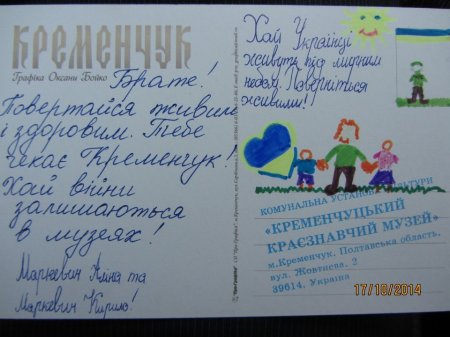 КРЕМЕНЧУК
Графіка Оксани Бойко
Брате!
Повертайся живим
і здоровим. Тебе
чекає Кременчук!
Хай війни
залишаються
в музеях!
Маркевич Аліна та
Маркевич Кирило!
Хай Українці
живуть під мирним
небом. Поверніться
живими!
КОМУНАЛЬНА УСТАНОВА КУЛЬТУРИ
«КРЕМЕНЧУЦЬКИЙ
КРАЄЗНАВЧИЙ МУЗЕЙ»
м.Кременчук, Полтавська область,
вул. Жовтнева, 2
39614, Україна
17/10/2014